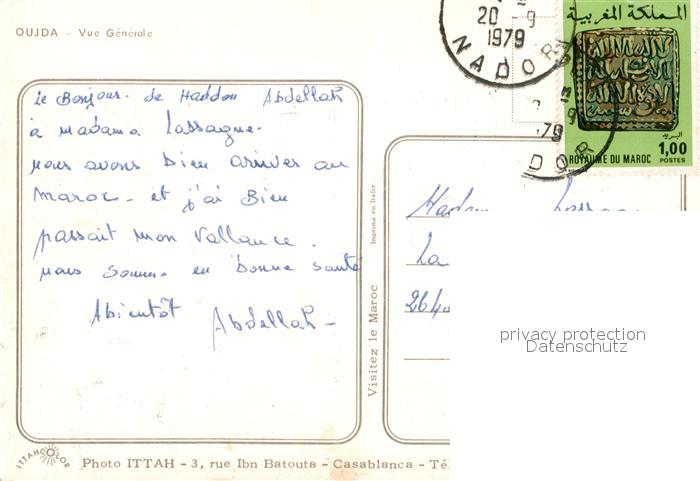 OUJDA - Vue Générale
20 - 9
1979
NADOR
المملكة المغربية
البريد
1,00
ROYAUME DU MAROC POSTES
79
DOR
Le Bonjour. de Haddou Abdellah
à Madama Lassagne.
nous avons bien arriver au
maroc - et j'ai Bien
passait mon Vallance.
nous somme en bonne santé
Abientôt Abdellah -
Imprimé en Italie
Visitez le Maroc
La
264
privacy protection
Datenschutz
ITTAHCOLOR
Photo ITTAH - 3, rue Ibn Batouta - Casablanca - Té